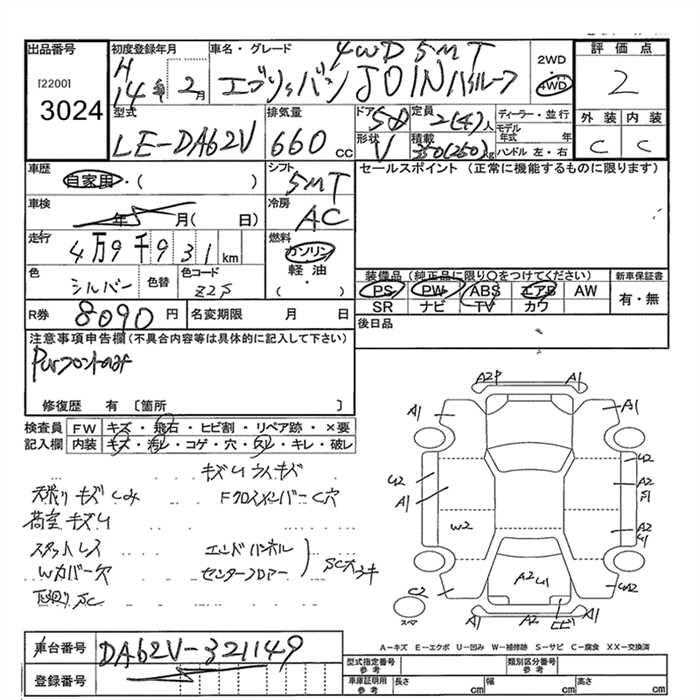 出品番号
[2200]
3024
初度登録年月
H
14年 2月
車名・グレード
4WD 5MT
エブリィバン JOINハイルーフ
2WD
4WD
評価点
2
型式
LE-DA62V
排気量
660 cc
ドア 5D
形状 V
定員 2(4)人
積載 350(250)kg
ディーラー・並行
モデル年式 年
ハンドル 左・右
外装 内装
C C
車歴
自家用・( )
シフト
5MT
セールスポイント (正常に機能するものに限ります)
車検
年 月( 日)
冷房
AC
走行
4万9千931km
燃料
ガソリン
軽油
( ・ )
色
シルバー
色替
色コード
Z2S
装備品 (純正品に限り○をつけてください)
PS PW ABS エアB AW
SR ナビ TV カワ
新車保証書
有・無
R券 8090円
名変期限 月 日
後日品
注意事項申告欄 (不具合内容等は具体的に記入して下さい)
PWフロントのみ
修復歴 有 [箇所 ]
検査員記入欄
FW キズ・飛石・ヒビ割・リペア跡・×要
内装 キズ・汚レ・コゲ・穴・スレ・キレ・破レ
キズUワイキズ
天張りキズしみ
FクロスメンバーC穴
荷室キズU
スタットレス
エンドパネル
Wカバー欠
センターフロアー
下廻りSC
A2P A1
A1 A1
U2 U2
A1 A2
W2 A2
C2 A2U1 U2
スペア ヒビ
A-キズ E-エクボ U-凹み W-補修跡 S-サビ C-腐食 XX-交換済
車台番号
DA62V-321149
登録番号
型式指定番号 参考
類別区分番号 参考
車庫証明用 参考
長さ cm 幅 cm 高さ cm